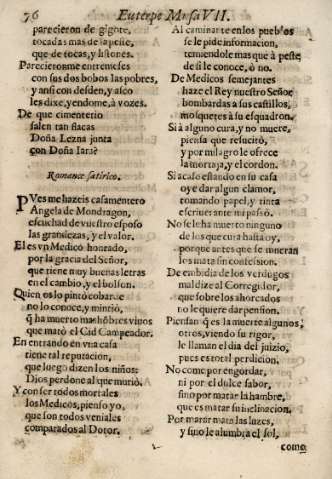 76 Euterpe Musa VII.
parecieron de gigote,
tocadas mas de la peste,
que de tocas, y listones.
Parecieronme entremeses
con sus dos bobos las pobres,
y ansi con desden, y asco
les dixe, yendome, à vozes.
De que cimenterio
salen tan flacas
Doña Lezna junta
con Doña Iara?
Romance satirico.
PVes me hazeis casamentero
Angela de Mondragon,
escuchad de vuestro esposo
las grandezas, y el valor.
El es vn Medico honrado,
por la gracia del Señor,
que tiene muy buenas letras
en el cambio, y el bolson.
Quien os lo pintò cobarde
no lo conoce, y mintiò,
q̃ ha muerto mas hõbres viuos
que matò el Cid Campeador.
En entrando en vna casa
tiene tal reputacion,
que luego dizen los niños:
Dios perdone al que muriò.
Y con ser todos mortales
los Medicos, pienso yo,
que son todos veniales
comparados al Dotor.
Al caminante en los pueblos
se le pide informacion,
temiendole mas que à peste
de si le conoce, ò no.
De Medicos semejantes
haze el Rey nuestro Señor
bombardas a sus castillos,
mosquetes à su esquadron.
Si à alguno cura, y no muere,
piensa que resucitò,
y por milagro le ofrece
la mortaja, y el cordon.
Si acaso estando en su casa
oye dar algun clamor,
tomando papel, y tinta
escriue: ante mi passò.
No se le ha muerto ninguno
de los que cura hasta oy,
porque antes que se mueran
los mata sin confession.
De embidia de los verdugos
maldize al Corregidor,
que sobre los ahorcados
no le quiere dar pension.
Piensan q̃ es la muerte algunos;
otros, viendo su rigor,
le llaman el dia del juizio,
pues es total perdicion.
No come por engordar,
ni por el dulce sabor,
sino por matar la hambre,
que es matar su inclinacion.
Por matar mata las luzes,
y si no le alumbra el sol,
como